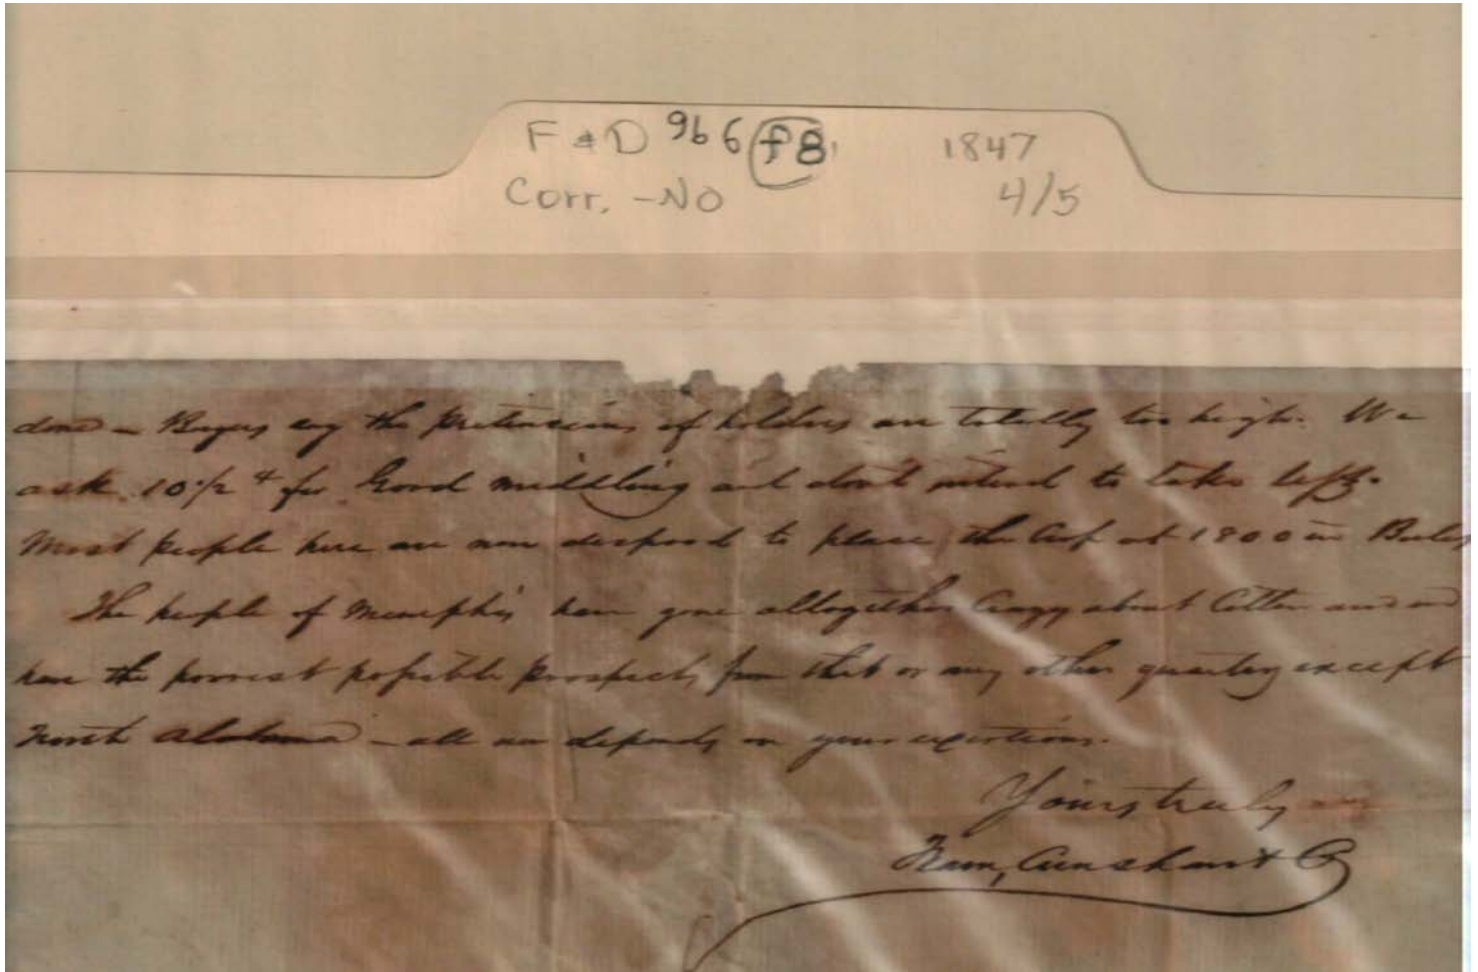 F & D 966 f8 1847
Corr. - NO 4/5
done - Buyers say the pretensions of holders are totally too high. We
ask 10 1/2 ¢ for Good middling and don't intend to take less.
Most people here are now disposed to place the Crop at 1800 m Bales
The people of Memphis have gone alltogether Crazy about Cotton and we
have the poorest possible prospects from that or any other quarter except
North Alabama - all now depends on your exertions.
Yours truly
& Co